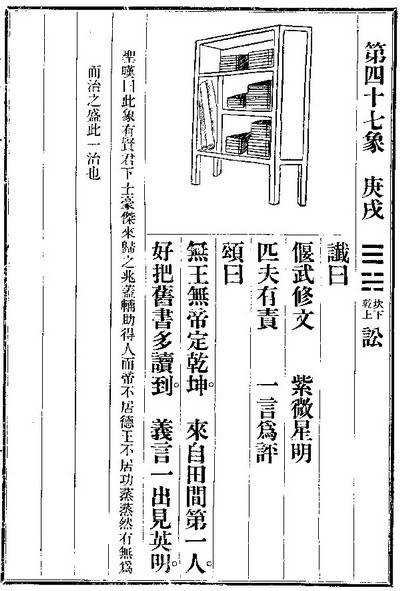 第四十七象 庚戌 ䷅ 坎下乾上 訟
讖曰
偃武修文 紫微星明
匹夫有責 一言爲評
頌曰
無王無帝定乾坤。 來自田間第一人。
好把舊書多讀到。 義言一出見英明。
聖嘆曰此象有賢君下士豪傑來歸之兆蓋輔助得人而帝不居德王不居功蒸蒸然有無爲
而治之盛此一治也